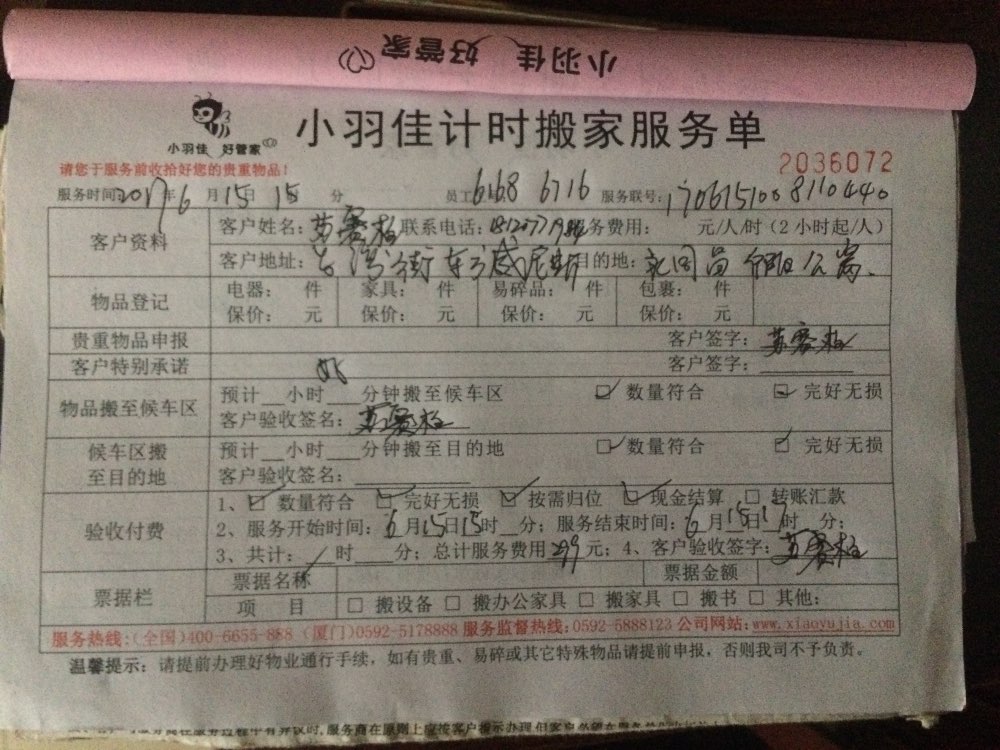 小羽佳 好管家
小羽佳 好管家
小羽佳计时搬家服务单
2036072
请您于服务前收拾好您的贵重物品！
服务时间2017年6月15日15分 员工6168 6716 服务联号：1706151008110440
客户资料
客户姓名：苏赛 联系电话： 服务费用： 元/人/时（2小时起/人）
客户地址：台湾街 威尼斯 目的地： 公寓.
物品登记
电器： 件 家具： 件 易碎品： 件 包裹： 件
保价： 元 保价： 元 保价： 元 保价： 元
贵重物品申报 客户签字：苏赛
客户特别承诺 客户签字：
物品搬至候车区
预计__小时__分钟搬至候车区 ☑ 数量符合 ☑ 完好无损
客户验收签名：苏赛
候车区搬至目的地
预计__小时__分钟搬至目的地 ☑ 数量符合 ☑ 完好无损
客户验收签名：
验收付费
1、☑ 数量符合 ☑ 完好无损 ☑ 按需归位 ☑ 现金结算 □ 转账汇款
2、服务开始时间：6月15日15时__分；服务结束时间：6月15日17时__分；
3、共计：/时__分；总计服务费用299元；4、客户验收签字：苏赛
票据栏
票据名称 票据金额
项 目 □ 搬设备 □ 搬办公家具 □ 搬家具 □ 搬书 □ 其他：
服务热线：(全国)400-6655-888 (厦门)0592-5178888 服务监督热线：0592-5888123 公司网站：www.xiaoyujia.com
温馨提示：请提前办理好物业通行手续，如有贵重、易碎或其它特殊物品请提前申报，否则我司不予负责。
服务过程中有异议时,服务商在原则上应按客户指示办理,但客户必须在